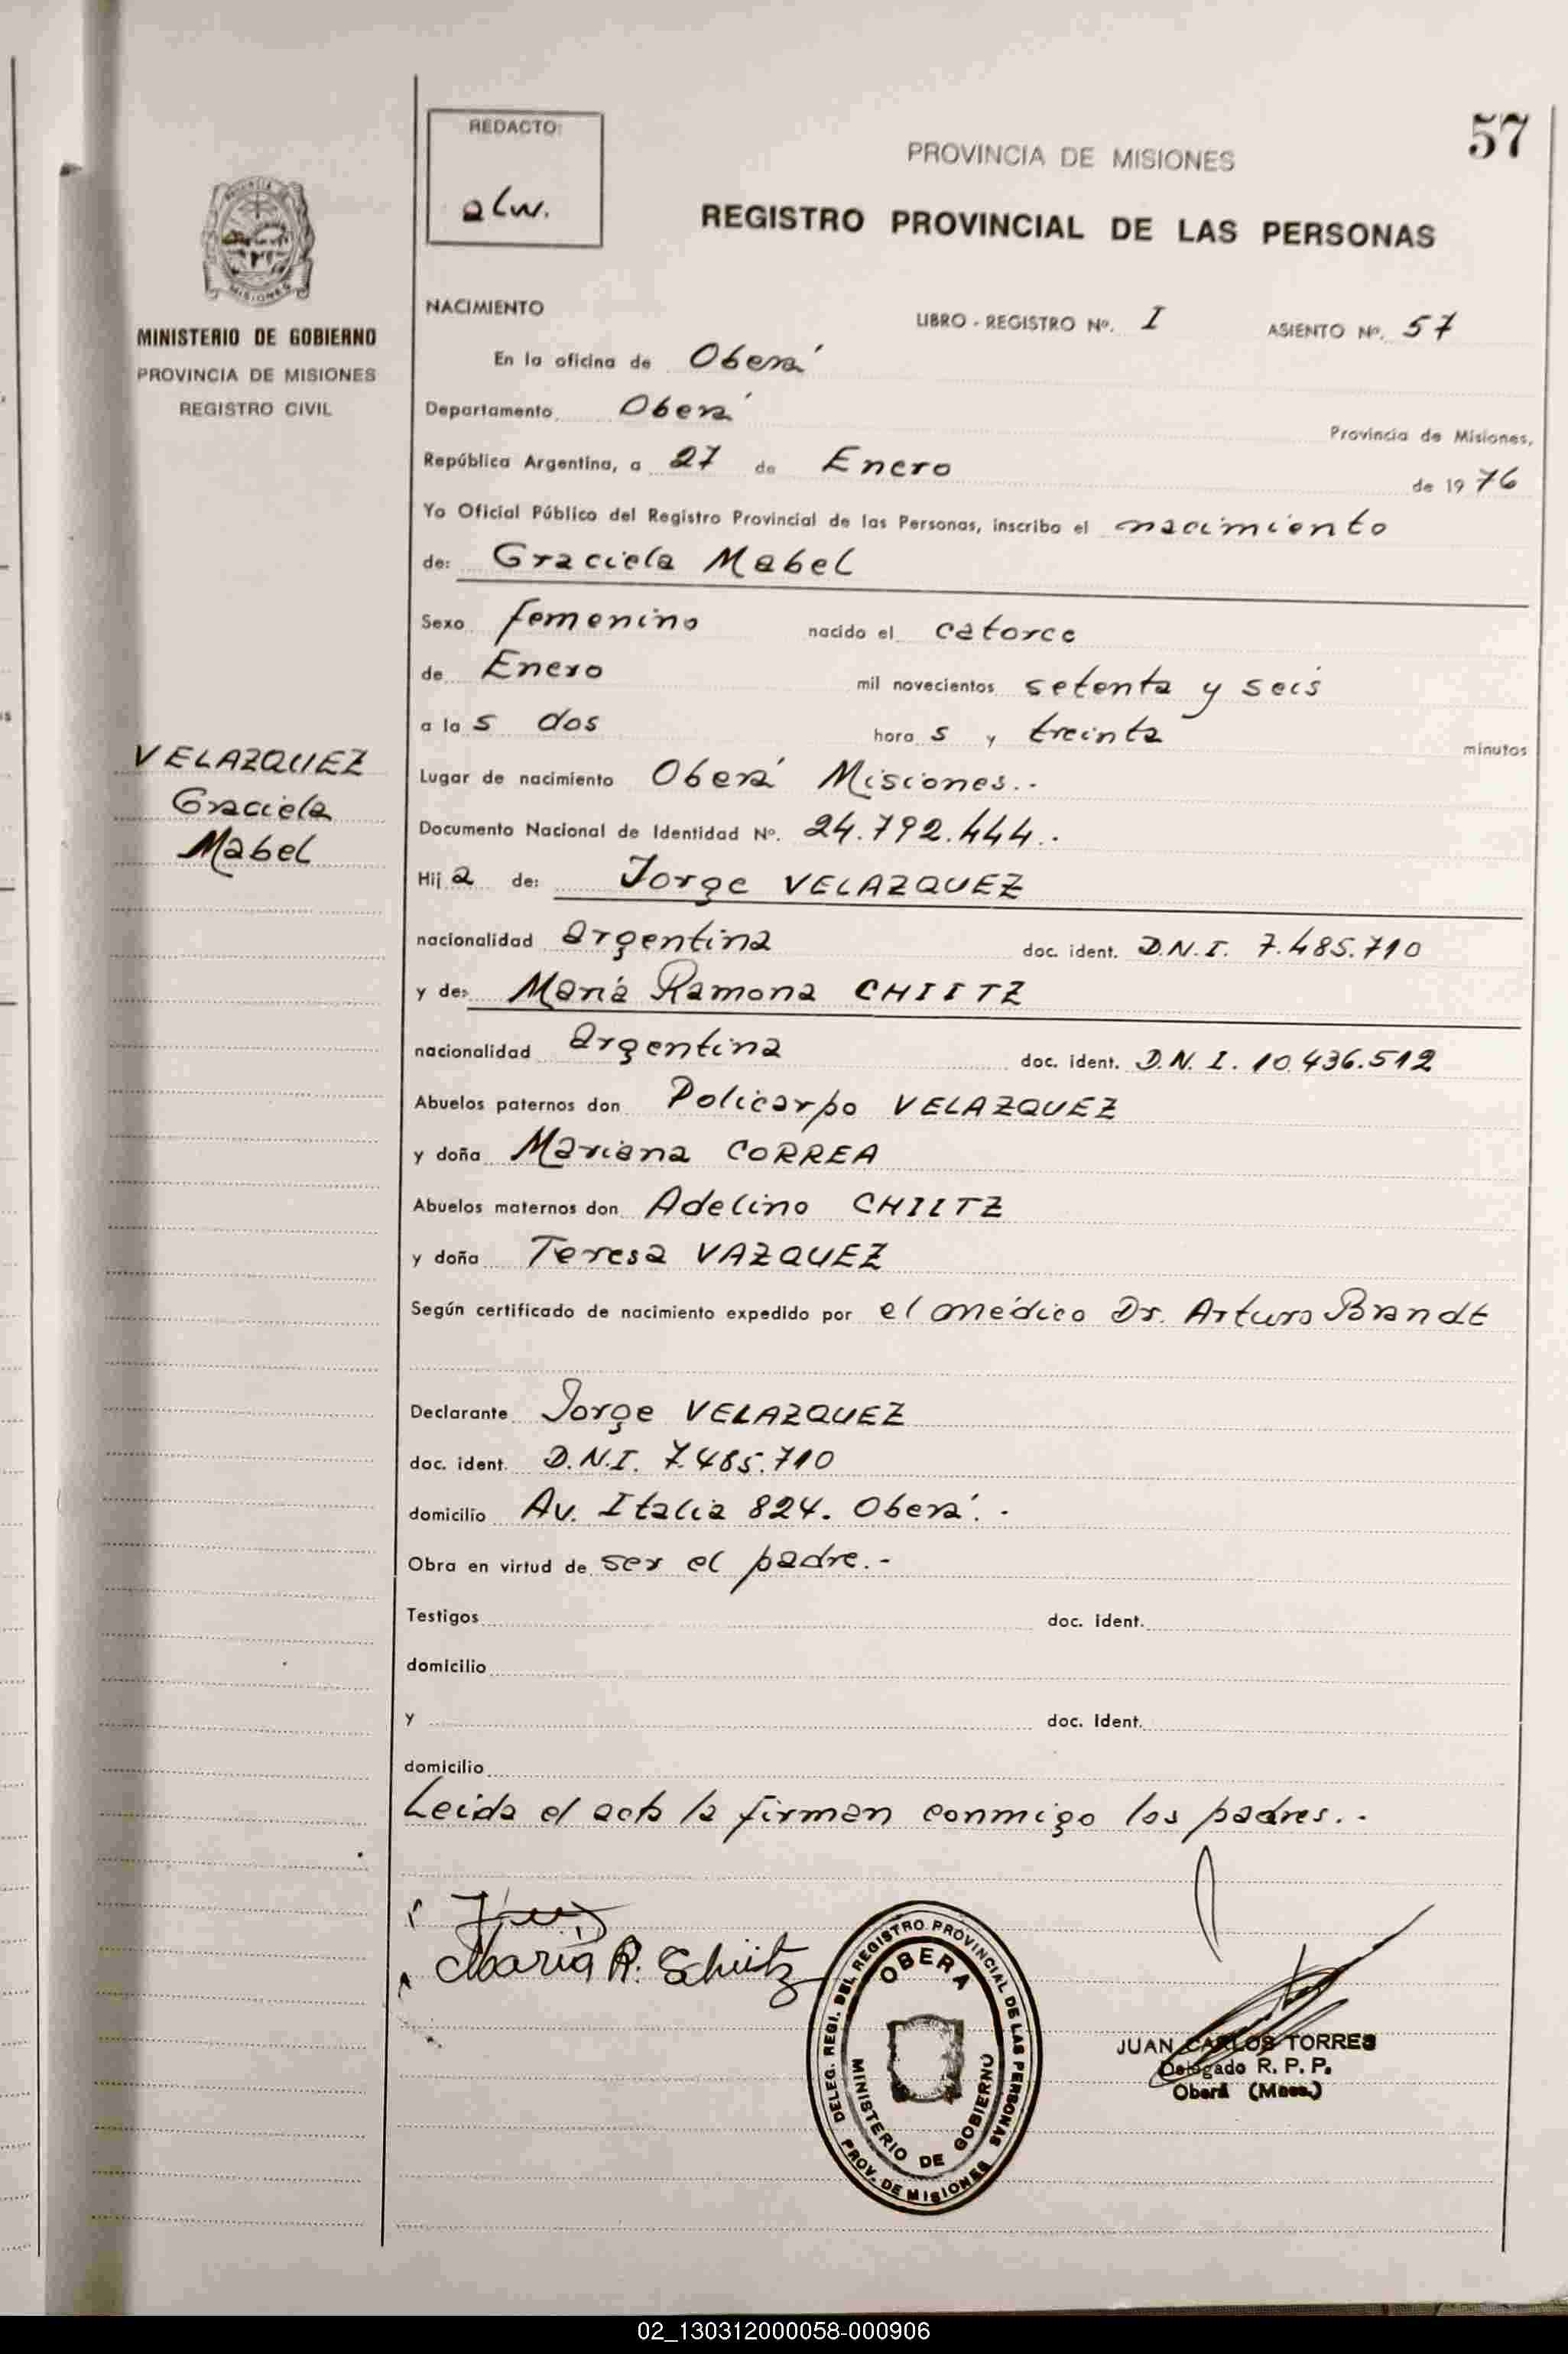 57
REDACTO:
alw.
PROVINCIA DE MISIONES
REGISTRO PROVINCIAL DE LAS PERSONAS
MISIONES
MINISTERIO DE GOBIERNO
PROVINCIA DE MISIONES
REGISTRO CIVIL
VELAZQUEZ
Graciela
Mabel
NACIMIENTO LIBRO - REGISTRO Nº. I ASIENTO Nº. 57
En la oficina de Oberá
Departamento Oberá Provincia de Misiones,
República Argentina, a 27 de Enero de 1976
Yo Oficial Público del Registro Provincial de las Personas, inscribo el nacimiento
de: Graciela Mabel
Sexo femenino nacido el catorce
de Enero mil novecientos setenta y seis
a las dos horas y treinta minutos
Lugar de nacimiento Oberá Misiones.-
Documento Nacional de Identidad Nº. 24.792.444.-
Hija de: Jorge VELAZQUEZ
nacionalidad argentina doc. ident. D.N.I. 7.485.710
y de: María Ramona CHIITZ
nacionalidad argentina doc. ident. D.N.I. 10.436.512
Abuelos paternos don Policarpo VELAZQUEZ
y doña Mariana CORREA
Abuelos maternos don Adelino CHIITZ
y doña Teresa VAZQUEZ
Según certificado de nacimiento expedido por el médico Dr. Arturo Brandt
Declarante Jorge VELAZQUEZ
doc. ident. D.N.I. 7.485.710
domicilio Av. Italia 824. Oberá.-
Obra en virtud de ser el padre.-
Testigos doc. ident.
domicilio
y doc. ident.
domicilio
Leida el acta la firman conmigo los padres.-
María R. Schütz
DELEG. REGI. DEL REGISTRO PROVINCIAL DE LAS PERSONAS
OBERA
MINISTERIO DE GOBIERNO
PROV. DE MISIONES
JUAN CARLOS TORRES
Delegado R. P. P.
Oberá (Mnes.)
02_130312000058-000906